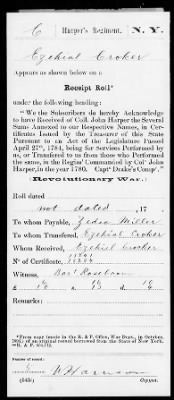 C Harper's Regiment. N. Y.
Ezekial Croker
Appears as shown below on a
Receipt Roll*
under the following heading:
"We the Subscribers do hereby Acknowledge
to have Received of Coll John Harper the Several
Sums Annexed to our Respective Names, in Cer-
tificates Issued by the Treasurer of this State
Pursuant to an Act of the Legislature Passed
April 27th, 1784, being for Services Performed by
us, or Transferred to us from those who Performed
the same, in the Regim' Commanded by Col' John
Harper, in the year 1780. Capt' Drake's Comp'."
Revolutionary War.
Roll dated
not dated, 17
To whom Payable, Miller
To whom Transferred, Ezekiel Croker
Whom Received, Ezekiel Croker
N° of Certificate,
Witness, Roseboom
£
Remarks:
Number of record:
(545b) Copyist.